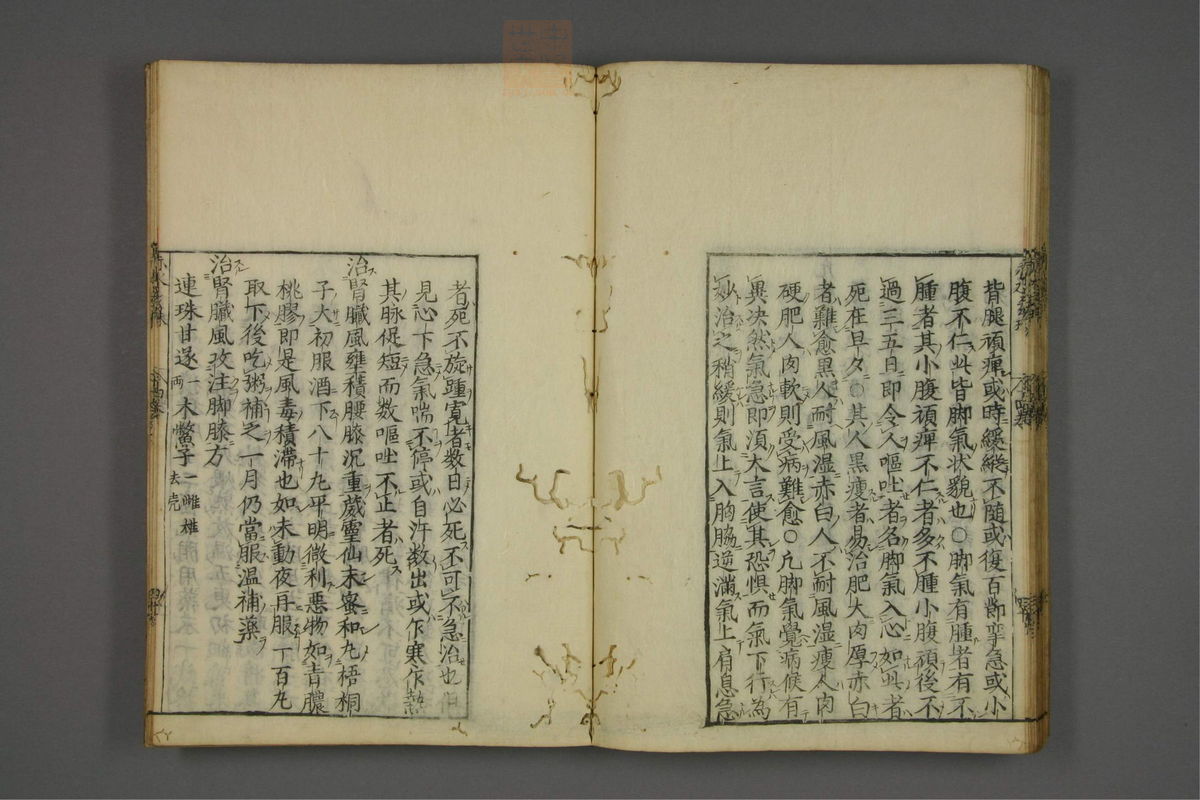 背腿頑痺或時緩縱不隨或復百節攣急或小
腹不仁此皆脚氣状貌也〇脚氣有腫者有不
腫者其小腹頑痺不仁者多不腫小腹頑後不
過三五日即令人嘔吐者名脚氣入心如此者
死在旦夕〇其人黒瘦者易治肥大肉厚赤白
者難愈黒人耐風湿赤白人不耐風湿瘦人肉
硬肥人肉軟則受病難愈〇凢脚氣覺病候有
異决然氣急即湏大言使其恐惧而氣下行為
妙治之稍緩則氣上入胸脇逆滿氣上肩息急
者死不旋踵寛者数日必死不可不急治也
見心下急氣喘不停或自汗数出或乍寒乍熱
其脉促短而数嘔吐不止者死
治腎臓風壅積腰膝沉重葳靈仙末蜜和丸梧桐
子大初服酒下八十九平明微利悪物如青膿
桃膠即是風毒積滞也如未動夜再服一百丸
取下後吃粥補之一月仍當服温補藥
治腎臓風攻注脚膝方
連珠甘遂一両木鱉子二雌雄去壳